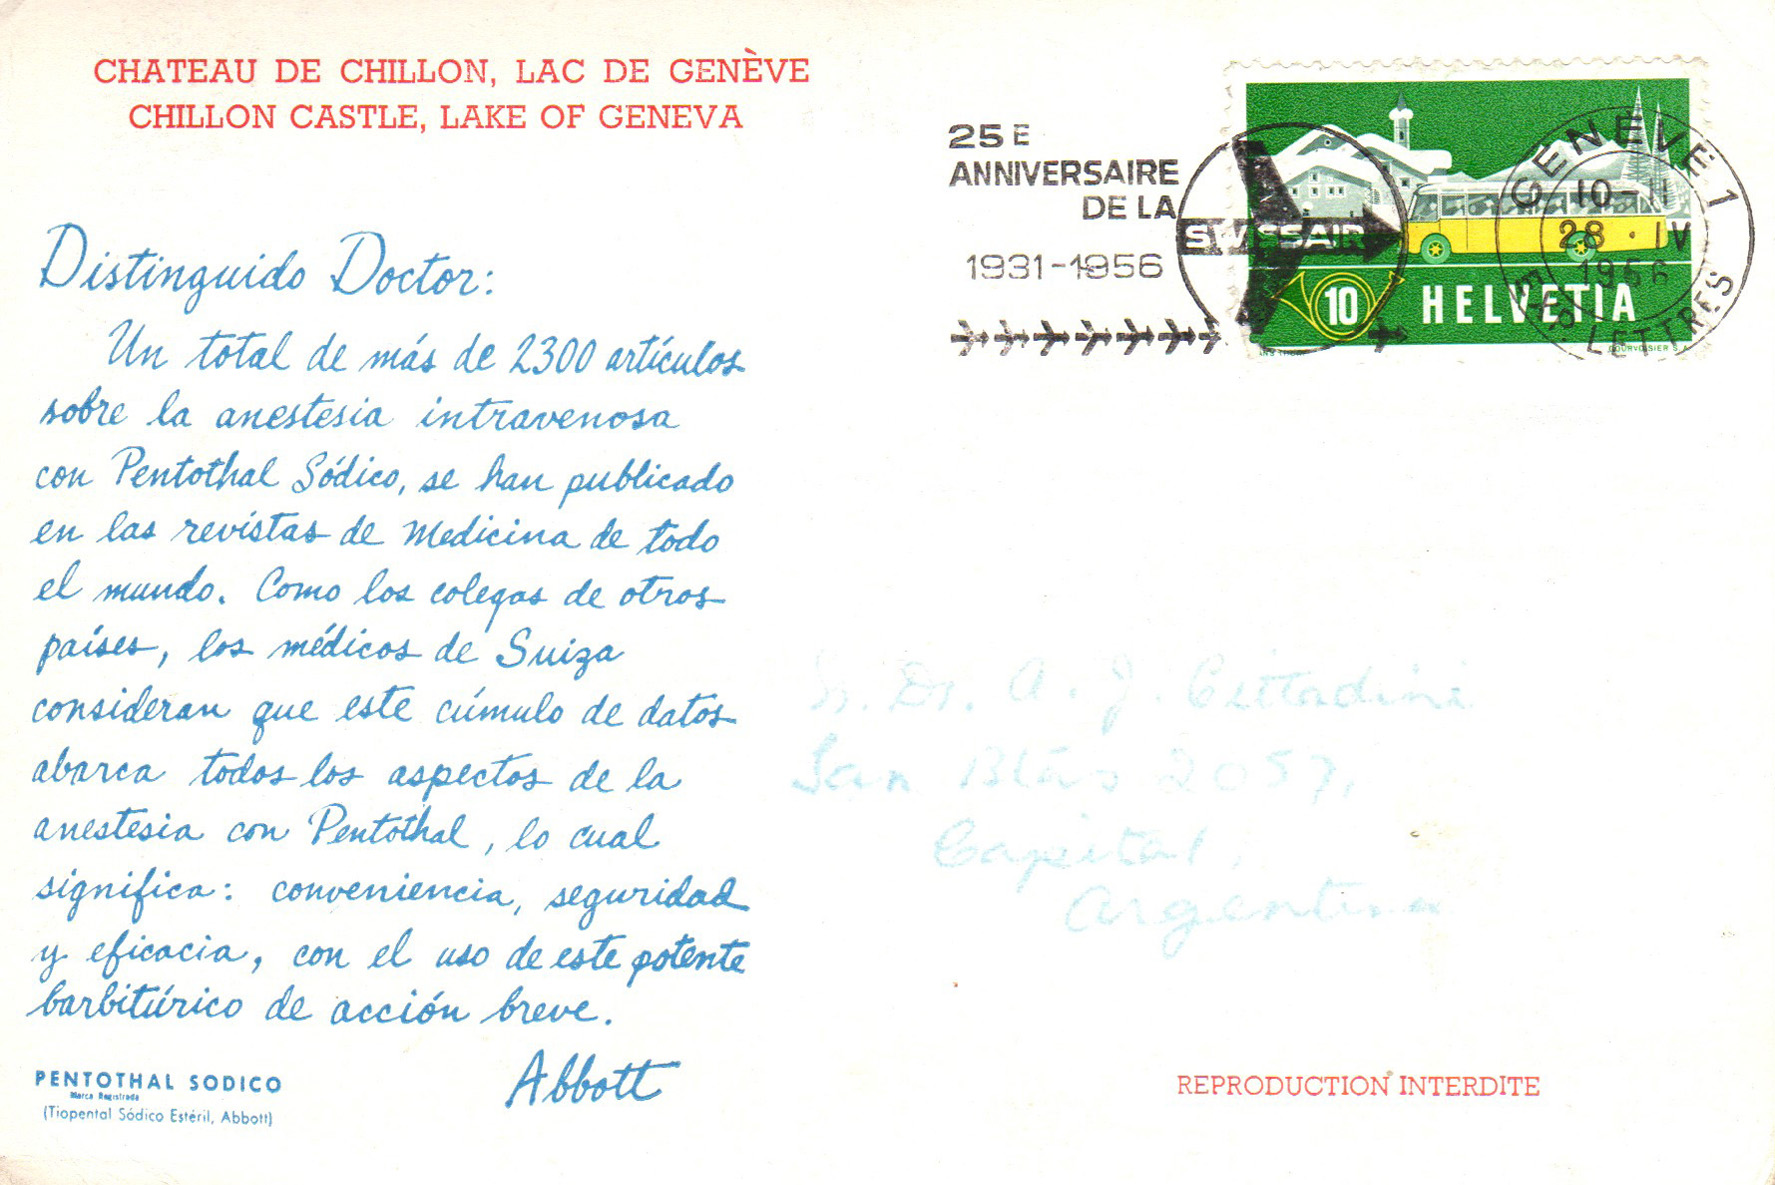 CHATEAU DE CHILLON, LAC DE GENÈVE
CHILLON CASTLE, LAKE OF GENEVA
Distinguido Doctor:
Un total de más de 2300 artículos
sobre la anestesia intravenosa
con Pentothal Sódico, se han publicado
en las revistas de Medicina de todo
el mundo. Como los colegas de otros
países, los médicos de Suiza
consideran que este cúmulo de datos
abarca todos los aspectos de la
anestesia con Pentothal, lo cual
significa: conveniencia, seguridad
y eficacia, con el uso de este potente
barbitúrico de acción breve.
Abbott
PENTOTHAL SODICO
Marca Registrada
(Tiopental Sódico Estéril, Abbott)
25E
ANNIVERSAIRE
DE LA
SWISSAIR
1931-1956
GENÈVE 1
10-11
28·IV
1956
EXP. LETTRES
10 HELVETIA
COURVOISIER S.A.
Sr. Dr. A. J. Cittadini
San Blás 2057,
Capital,
Argentina
REPRODUCTION INTERDITE